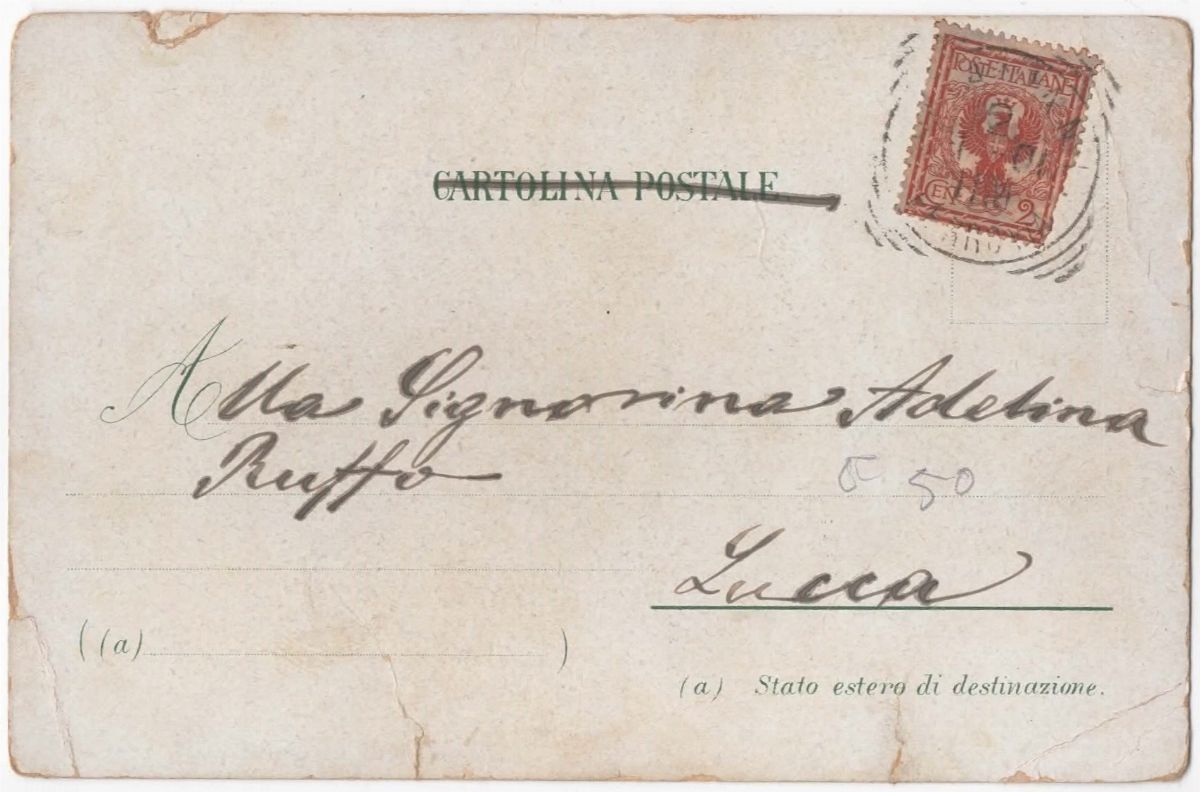 POSTE ITALIANE
2
CARTOLINA POSTALE
Alla Signorina Adelina
Ruffo
50
Lucca
( (a) )
(a) Stato estero di destinazione.